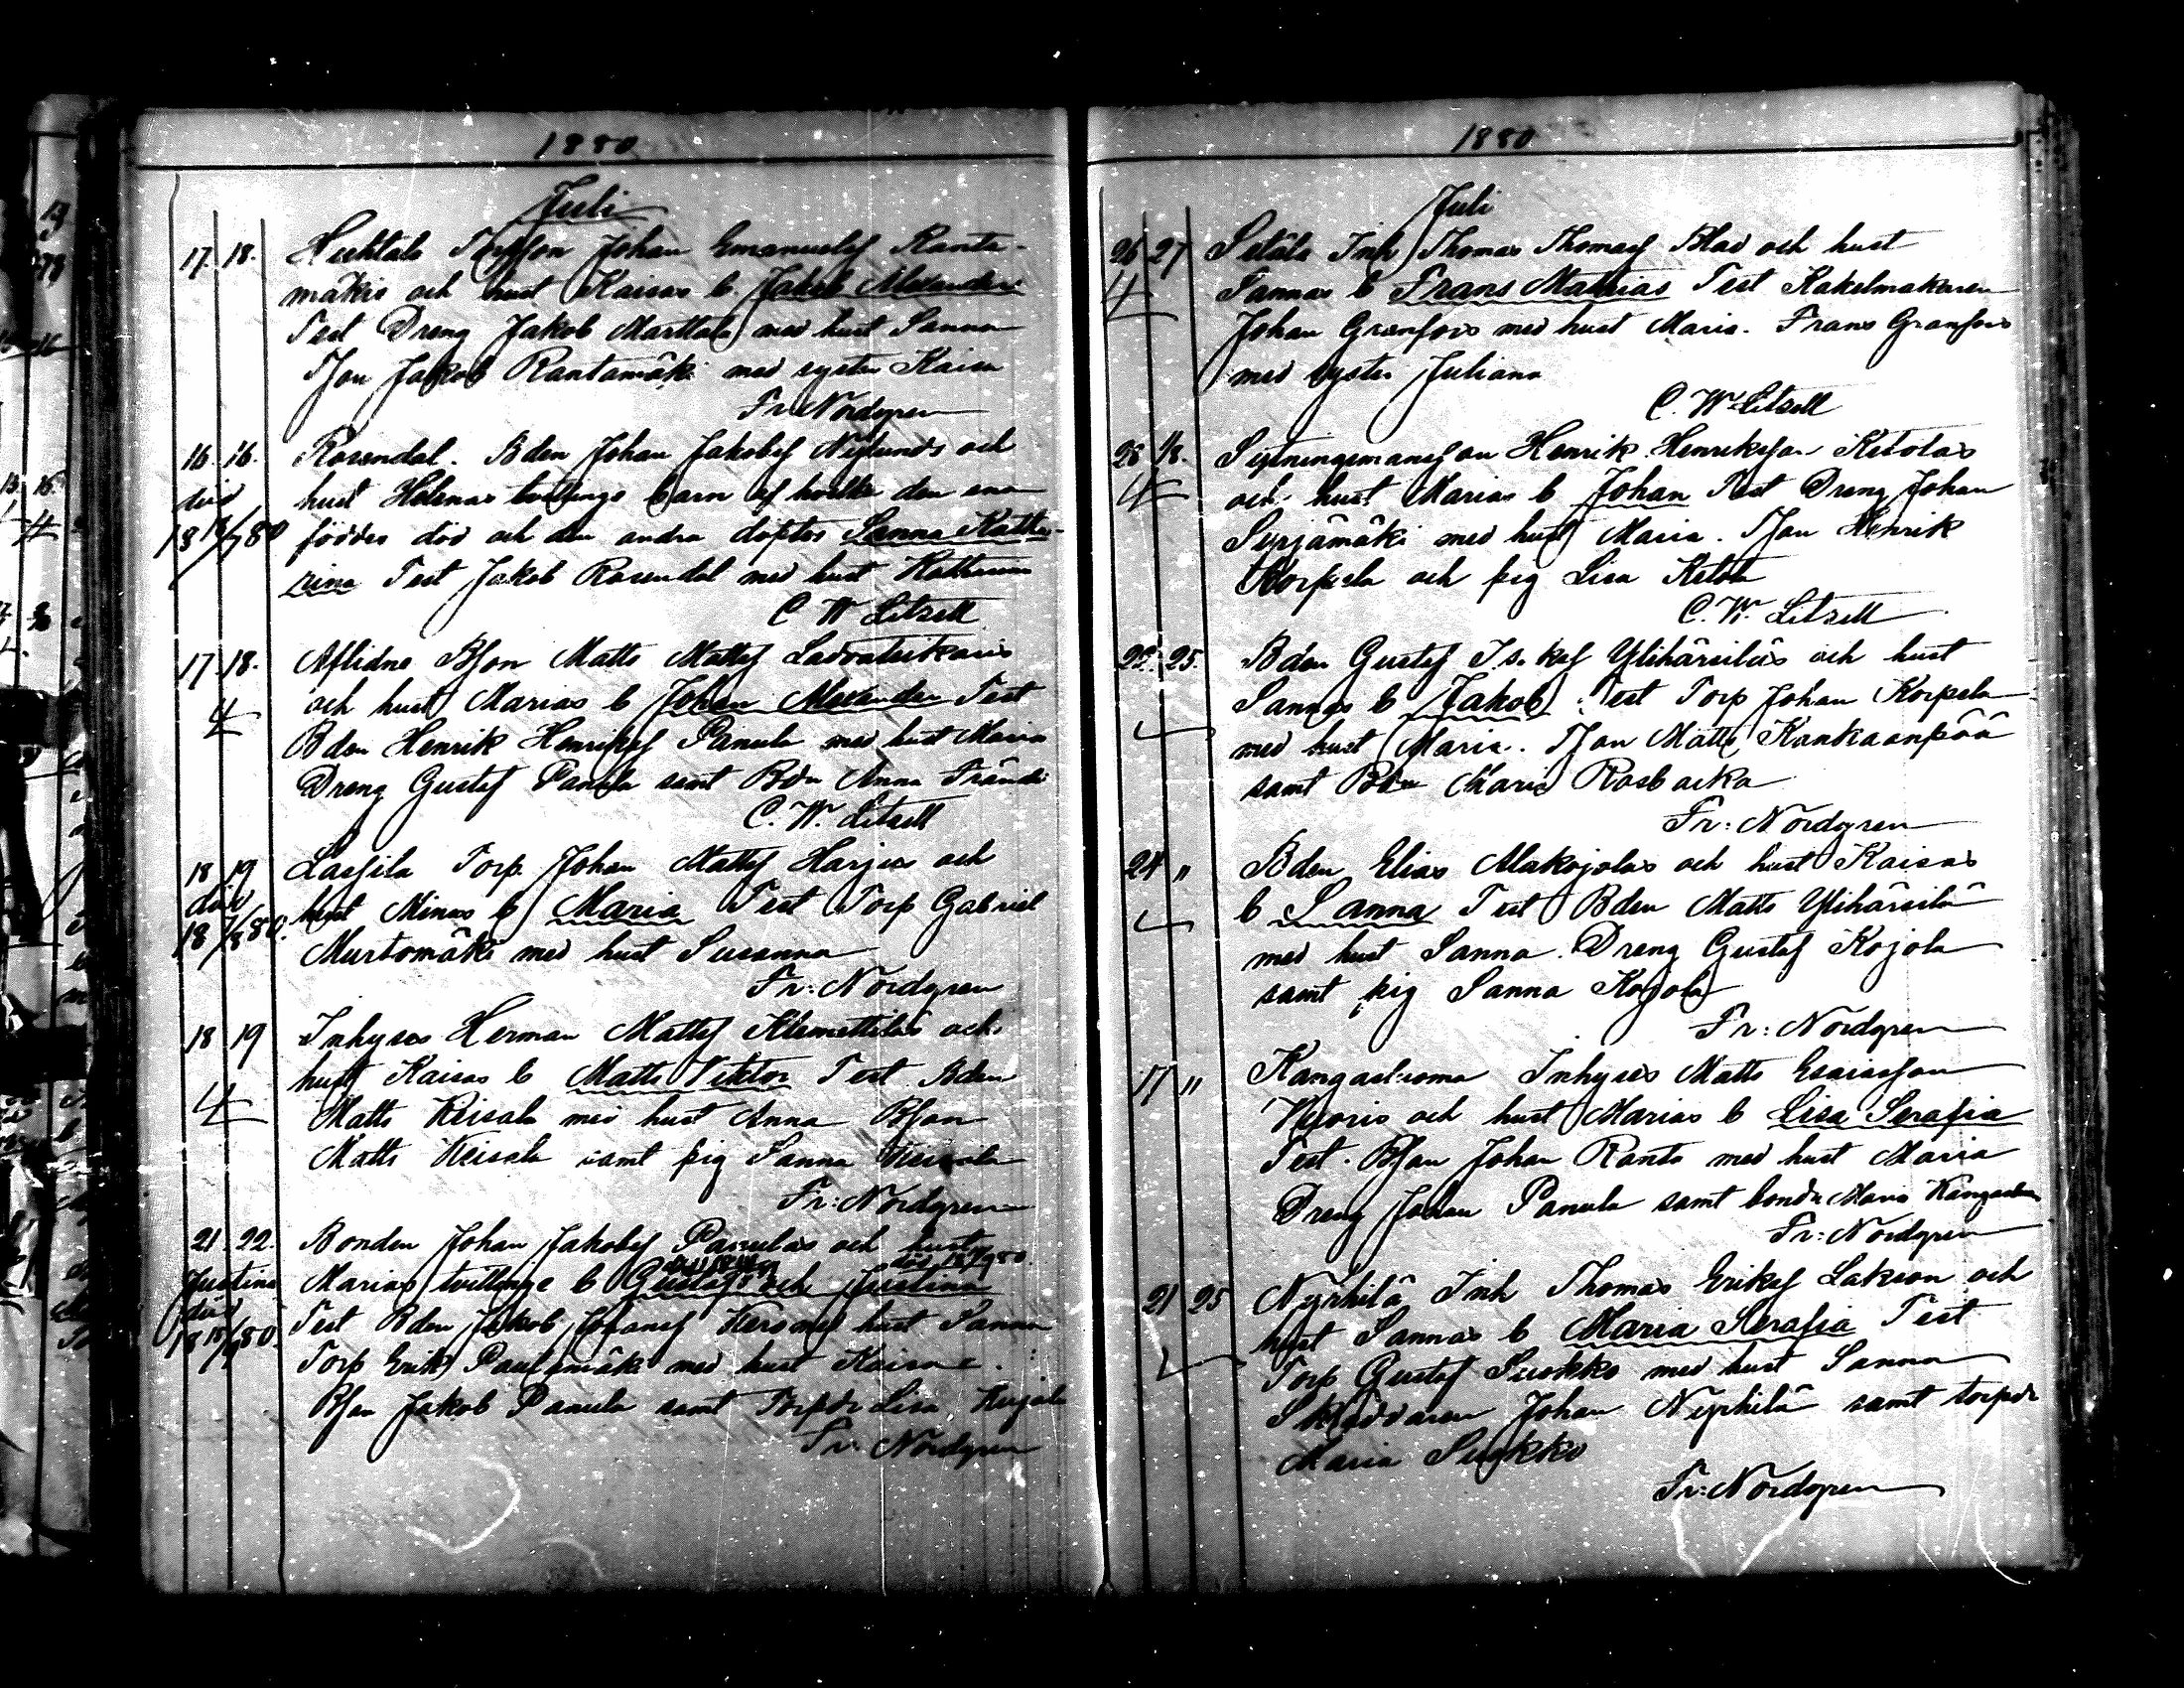 1880
Juli
17. 18. Huhtala Torpson Johan Emanuelss Ranta-
mäkis och hust Kaisas b. Jakob Alexander
Test Dreng Jakob Marttala med hust Sanna
Tson Jakob Rantamäki med syster Kaisa
Fr: Nordgren
16. 16. Rosendal. Bden Johan Jakobss Nylunds och
död hust Helenas tvillinge barn af hvilka den ena
18 /7 80 föddes död och den andra döptes Sanna Kathe-
rina Test Jakob Rosendal med hust Katharina
C. W. Litzell
17. 18. Aflidne Bson Matts Mattss
och hust Marias b Johan Alexander Test
Bden Henrik Henrikss Panula med hust Maria
Dreng Gustaf Panula samt Bdr Anna
C. W. Litzell
18 19 Lassila Torp. Johan Mattss Harjus och
död hust Minas b Maria Test Torp Gabriel
18 7/8 80. Murtomäki med hust Susanna
Fr: Nordgren
18 19 Inhyses Herman Mattss Klemettiläs och
hust Kaisas b Matts Viktor Test Bden
Matts Keisala med hust Anna Bson
Matts Keisala samt pig Sanna Keisala
Fr: Nordgren
21. 22. Bonden Johan Jakobss Panulas och hust
Justina Marias tvillinge b Gustaf och Justina
död Test Bden Jakob Johanss hust Sanna
18 /9 80. Torp Erik med hust Kaisa
Bson Jakob Panula samt Torpdr Lisa Kujala
Fr: Nordgren
1880
Juli
26 27 Setälä Inh Thomas Thomass Blad och hust
Sannas b Frans Mathias Test Kakelmakaren
Johan Granfors med hust Maria. Frans Granfors
med syster Juliana
C. W. Litzell
28 1/8. Sytningsmansson Henrik Henriksson Ketolas
och hust Marias b Johan Test Dreng Johan
Syrjämäki med hust Maria. Tson Henrik
Korpela och pig Lisa Ketola
C. W. Litzell
25. Bden Gustaf Ylihärsiläs och hust
Sannas b Jakob Test Torp Johan Korpela
med hust Maria. Tson Matts Kankaanpää
samt Bdr Maria Rasbacka
Fr: Nordgren
24 " Bden Elias Alakojolas och hust Kaisas
b Sanna Test Bden Matts Ylihärsilä
med hust Sanna. Dreng Gustaf Kojola
samt pig Sanna Kojola
Fr: Nordgren
17 " Inhyses Matts Esaiasson
och hust Marias b Lisa Serafia
Test. Bson Johan Ranto med hust Maria
Dreng Johan Panula samt bondr Maria
Fr: Nordgren
21 25 Nyrhilä Inh Thomas Erikss Lakson och
hust Sannas b Maria Serafia Test
Torp Gustaf Suokko med hust Sanna
Skräddaren Johan Nyrhilä samt torpdr
Maria Suokko
Fr: Nordgren